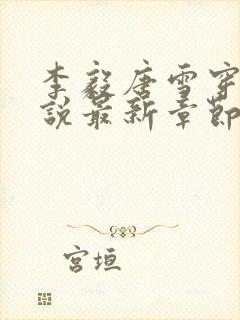 李毅唐雪穿
说最新章节
宫垣